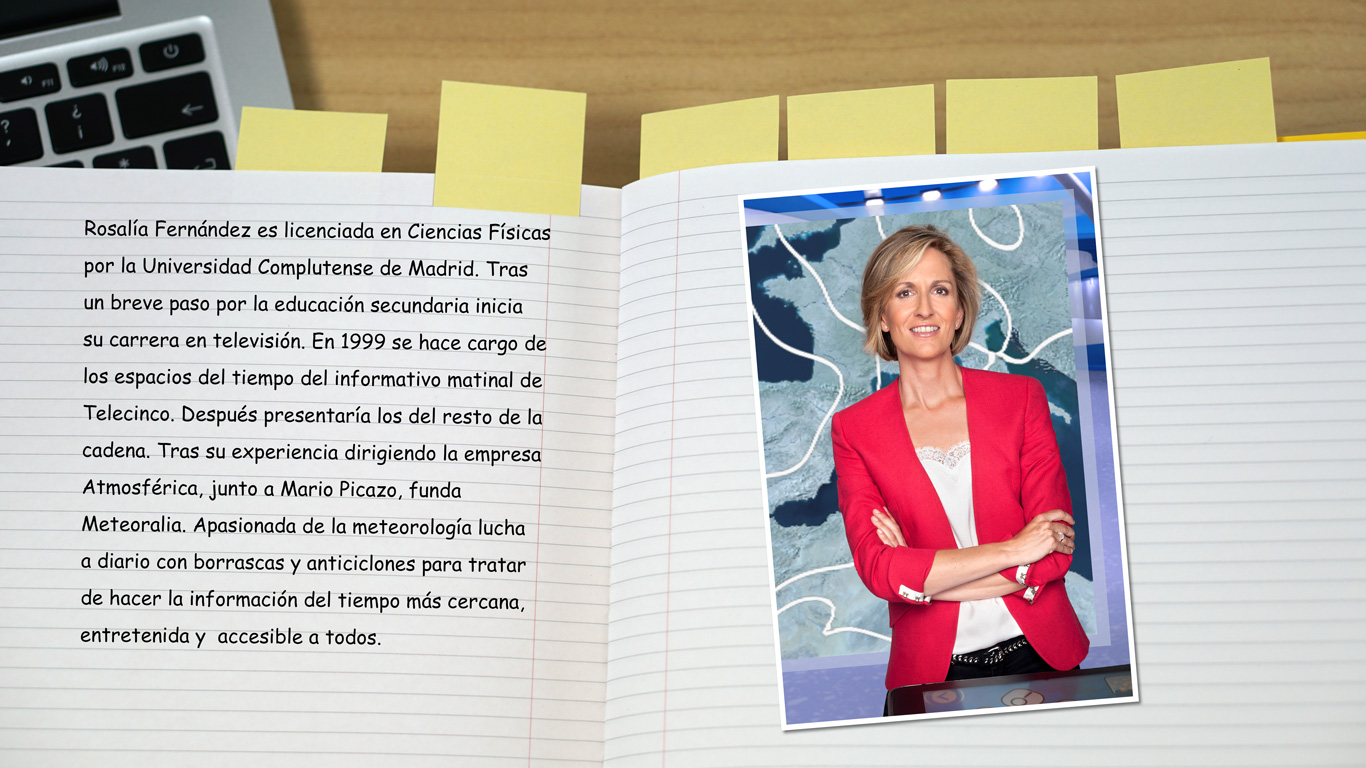 F11
F12
?
¿
¡
*
Rosalía Fernández es licenciada en Ciencias Físicas
por la Universidad Complutense de Madrid. Tras
un breve paso por la educación secundaria inicia
su carrera en televisión. En 1999 se hace cargo de
los espacios del tiempo del informativo matinal de
Telecinco. Después presentaría los del resto de la
cadena. Tras su experiencia dirigiendo la empresa
Atmosférica, junto a Mario Picazo, funda
Meteoralia. Apasionada de la meteorología lucha
a diario con borrascas y anticiclones para tratar
de hacer la información del tiempo más cercana,
entretenida y  accesible a todos.